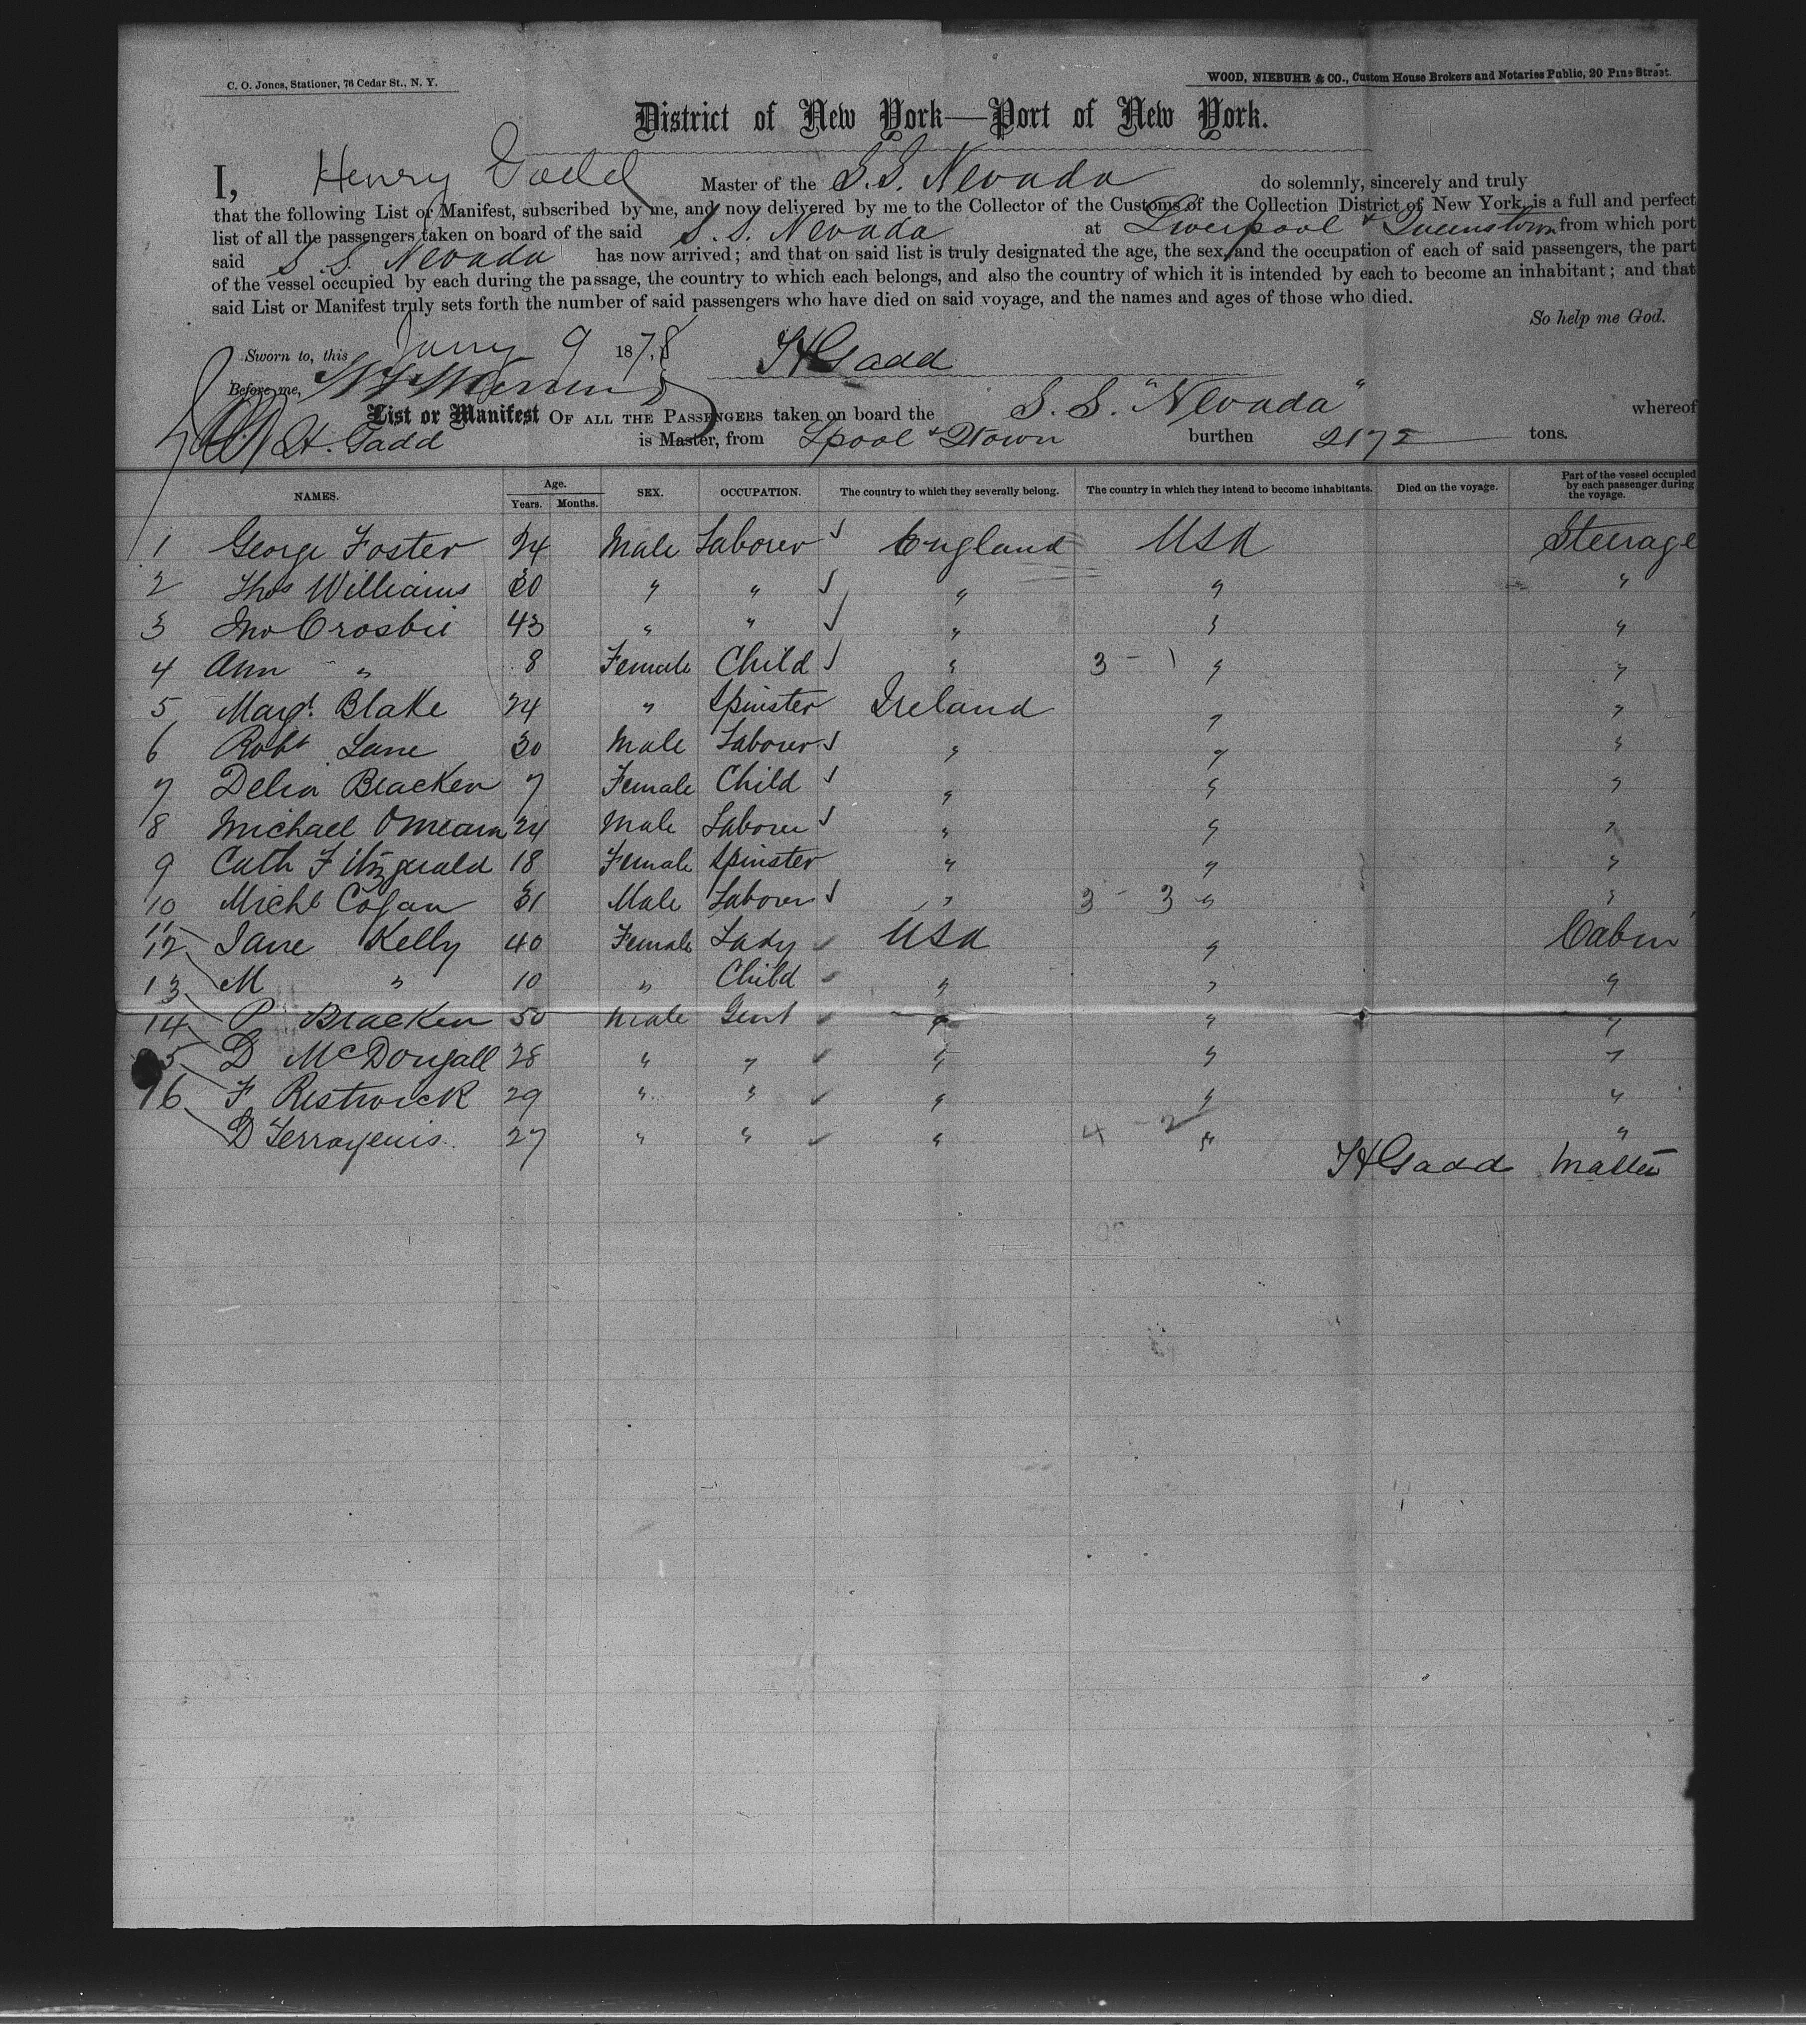 C. O. Jones, Stationer, 76 Cedar St., N. Y.
WOOD, NIEBUHR & CO., Custom House Brokers and Notaries Public, 20 Pine Street.
District of New York—Port of New York.
I, Henry Gadd Master of the S.S. Nevada do solemnly, sincerely and truly
that the following List or Manifest, subscribed by me, and now delivered by me to the Collector of the Customs of the Collection District of New York, is a full and perfect
list of all the passengers taken on board of the said S. S. Nevada at Liverpool & Queenstown from which port
said S. S. Nevada has now arrived; and that on said list is truly designated the age, the sex, and the occupation of each of said passengers, the part
of the vessel occupied by each during the passage, the country to which each belongs, and also the country of which it is intended by each to become an inhabitant; and that
said List or Manifest truly sets forth the number of said passengers who have died on said voyage, and the names and ages of those who died.
So help me God.
Sworn to, this Jany 9 1878 HGadd
Before me,
List or Manifest OF ALL THE PASSENGERS taken on board the S. S. "Nevada" whereof
H. Gadd is Master, from Lpool & Qtown burthen tons.
NAMES. Age. Years. Months. SEX. OCCUPATION. The country to which they severally belong. The country in which they intend to become inhabitants. Died on the voyage. Part of the vessel occupied by each passenger during the voyage.
1 George Foster 24 Male Laborer England USA Steerage
2 Thos Williams 30 " " " " "
3 Jno Crosbie 43 " " " " "
4 Ann " 8 Female Child " 3 - 1 " "
5 Margt. Blake 24 " Spinster Ireland " "
6 Robt Lane 30 Male Laborer " " "
7 Delia Bracken 7 Female Child " " "
8 Michael Omeara 24 Male Laborer " " "
9 Cath Fitzgerald 18 Female Spinster " " "
10 Michl 31 Male Laborer " 3 - 3 " "
11
12 Jane Kelly 40 Female Lady USA " Cabin
13 M " 10 " Child " " "
14 P Bracken 50 Male Gent " " "
15 D McDougall 28 " " " " "
16 F Restwick 29 " " " " "
D 27 " " " 4 - 2 " "
HGadd Master